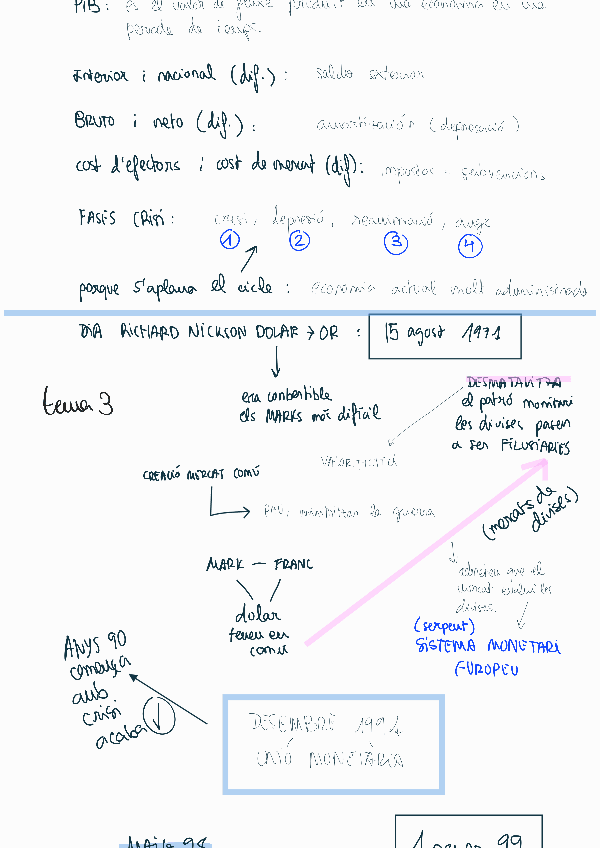 PIB: és el valor de
periode de temps.
Interior i nacional (dif.): saldo exterior
BRUTO i neto (dif.): amortización (depreciació)
cost d'efectors i cost de mercat (dif):
FASES CRISI: crisi, depresió, reanimació, auge
1 2 3 4
porque s'aplana el cicle: economia actual molt administrada
DIA RICHARD NICKSON DOLAR → OR : 15 agost 1971
tema 3
era contertible
els MARKS més difícil
DESMATALITZA
el patró monitari
les divises pasen
a ser FILUSIARIES
CREACIÓ MERCAT COMÚ
la guerra
(mercats de
divises)
MARK — FRANC
dolar
teneu en
comú
que el
divises.
(serpent)
SISTEMA MONETARI
EUROPEU
ANYS 90
comença
amb
crisi
acaba ↓
DESEMBRE 1991
UNIÓ MONETÀRIA
99